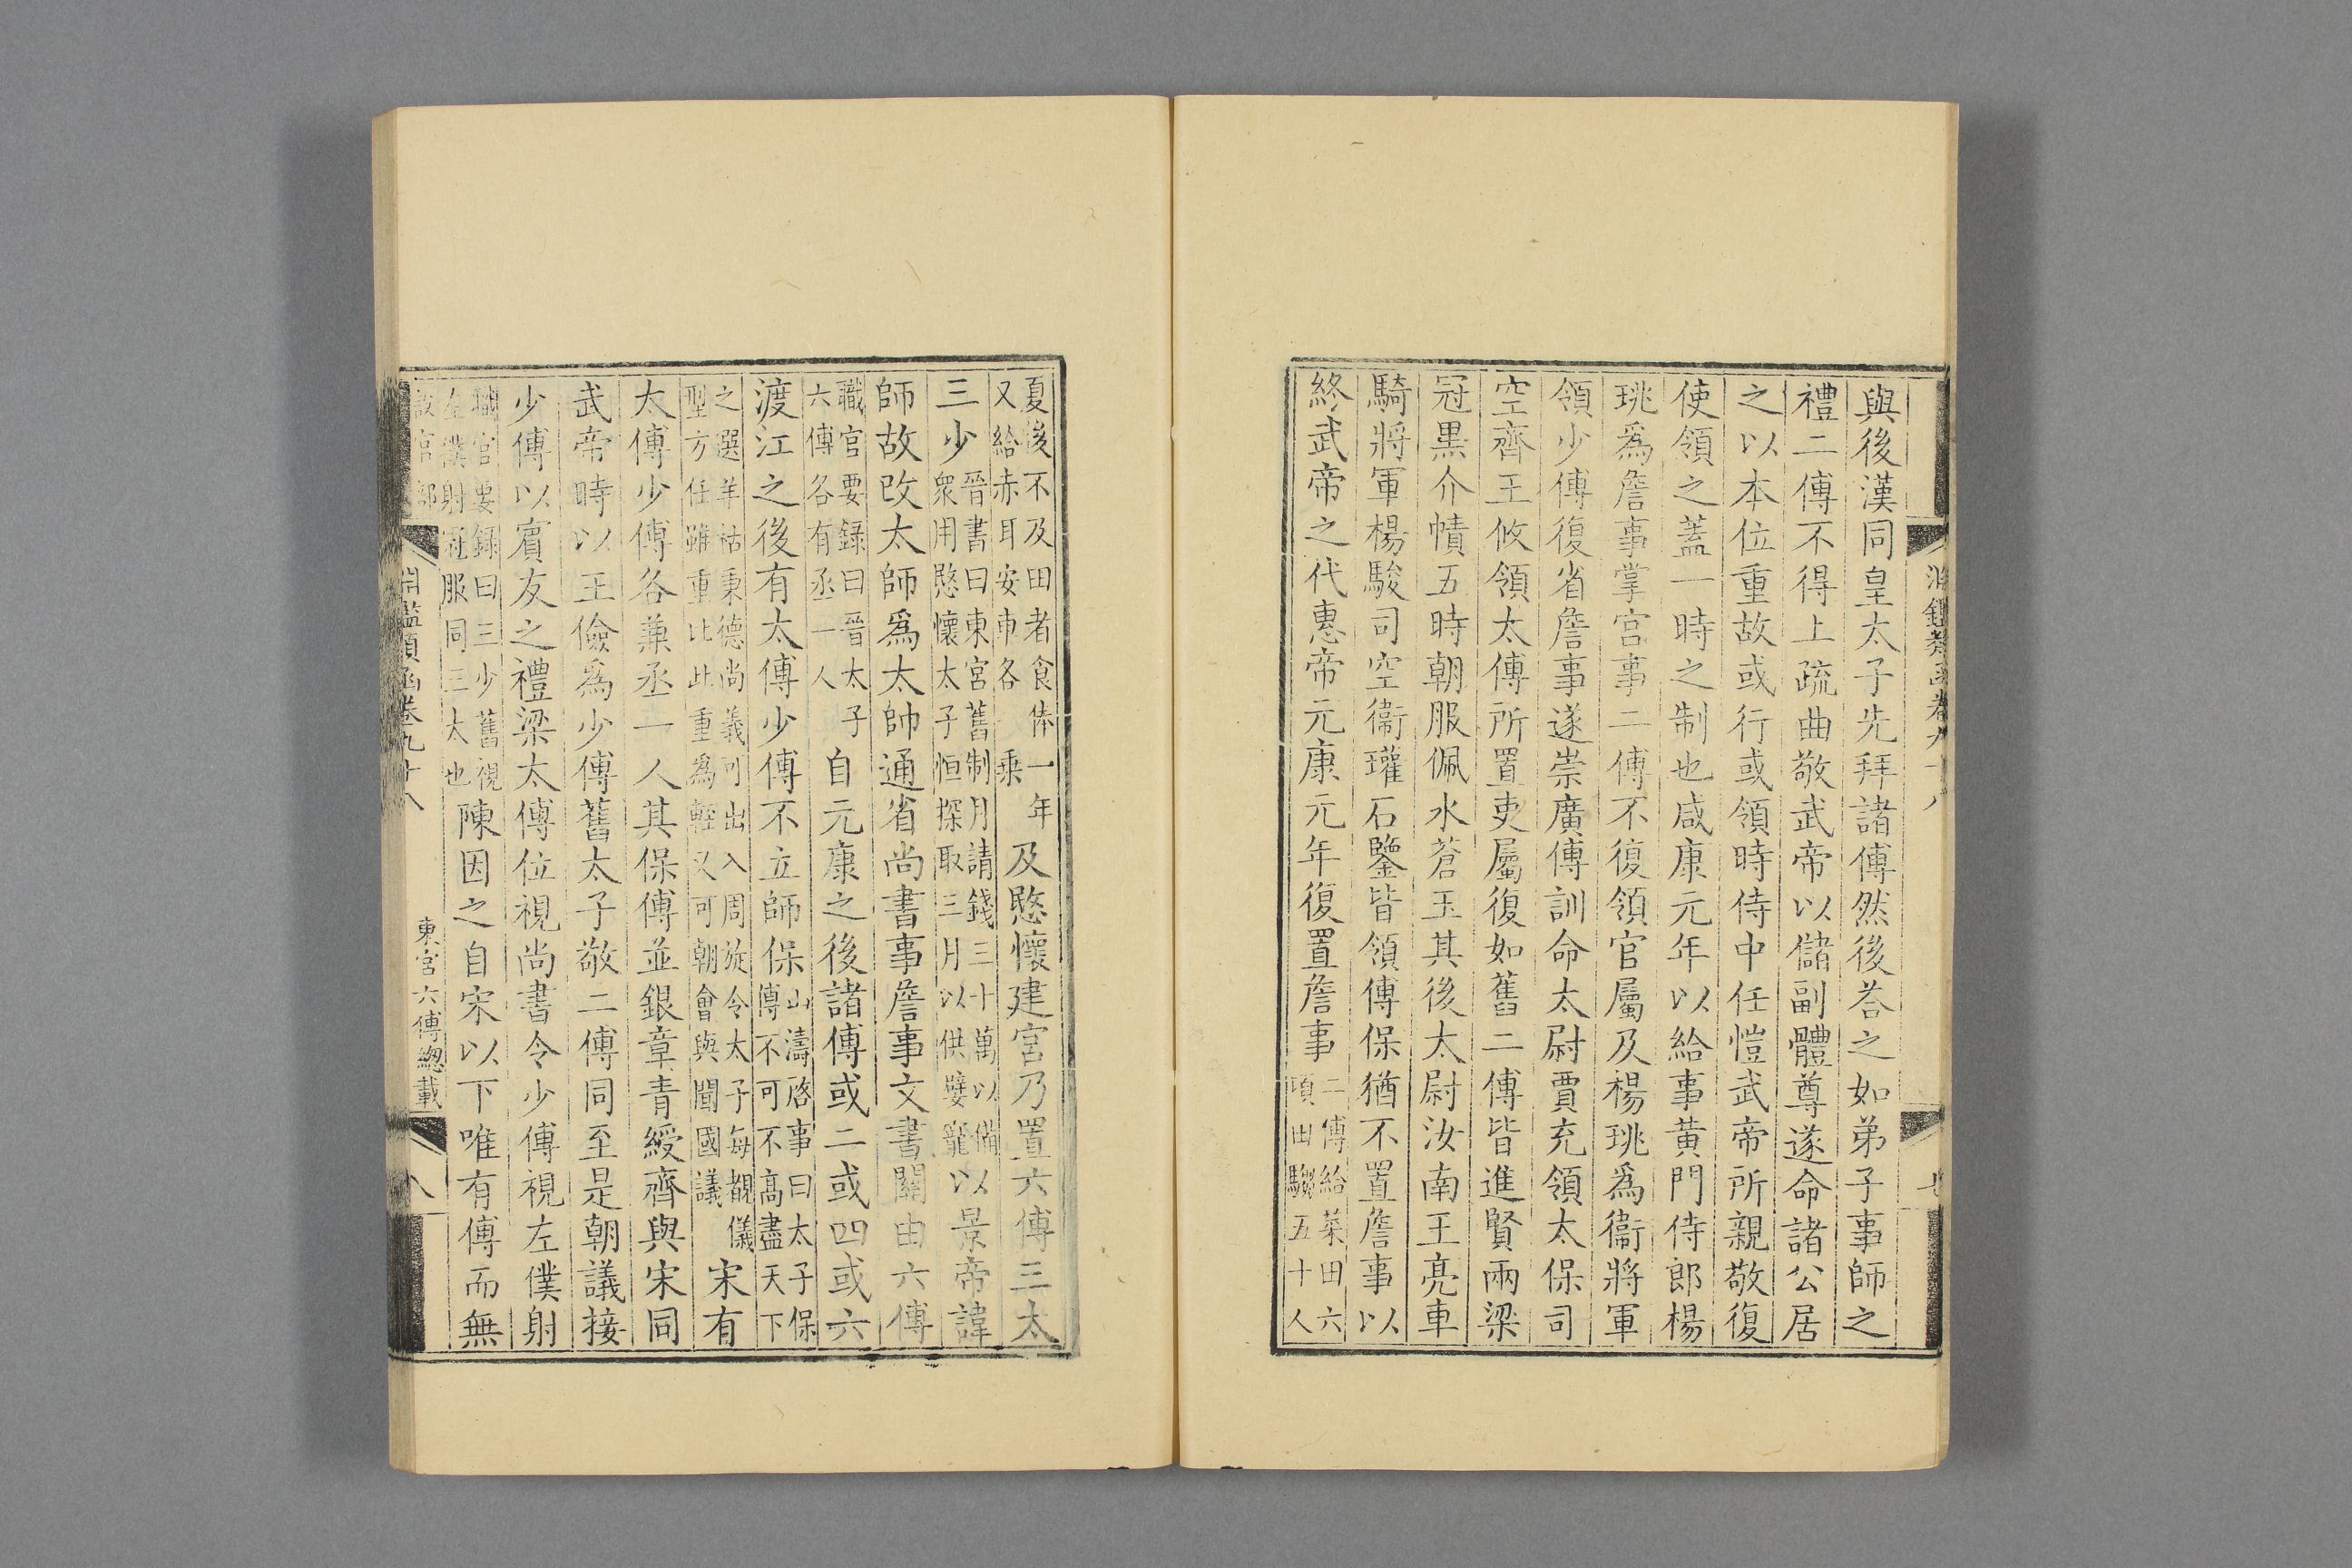 與後漢同皇太子先拜諸傅然後荅之如弟子事師之
禮二傅不得上疏曲敬武帝以儲副體尊遂命諸公居
之以本位重故或行或領時侍中任愷武帝所親敬復
使領之蓋一時之制也咸康元年以給事黄門侍郎楊
珧爲詹事掌宮事二傅不復領官屬及楊珧爲衞將軍
領少傅復省詹事遂崇廣傅訓命太尉賈充領太保司
空齊王攸領太傅所置吏屬復如舊二傅皆進賢兩梁
冠黒介幘五時朝服佩水蒼玉其後太尉汝南王亮車
騎將軍楊駿司空衞瓘石鑒皆領傅保猶不置詹事以
終武帝之代惠帝元康元年復置詹事二傅給菜田六
項田騶五十人
夏後不及田者食俸一年
又給赤耳安車各一乘及愍懷建宮乃置六傅三太
三少晉書曰東宮舊制月請錢三十萬以備
衆用愍懷太子恒探取三月以供嬖寵以景帝諱
師故改太師爲太帥通省尚書事詹事文書關由六傅
職官要録曰晉太子
六傅各有丞一人自元康之後諸傅或二或四或六
渡江之後有太傅少傅不立師保山濤啓事曰太子保
傅不可不高盡天下
之選羊祜秉德尚義可出入周旋令太子每覩儀
型方任雖重比此重爲輕又可朝會與聞國議宋有
太傅少傅各兼丞一人其保傅並銀章青綬齊與宋同
武帝時以王儉爲少傅舊太子敬二傅同至是朝議接
少傅以賓友之禮梁太傅位視尚書令少傅視左僕射
職官要録曰三少舊視
左僕射冠服同三太也陳因之自宋以下唯有傅而無
淵鑑類函卷九十八
東宮六傅總載
八
設官部